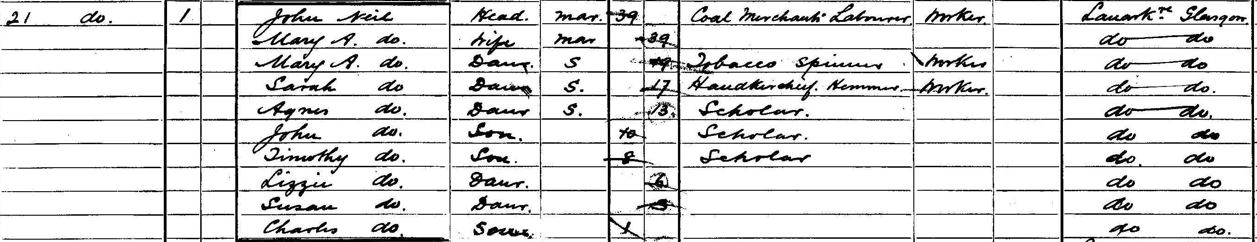 21 do. 1 John Neil Head. mar. 39 Coal Merchants Labourer Worker. Lanarkre Glasgow
Mary A. do. Wife mar 39 do do
Mary A. do. Daur. S 19 Tobacco Spinner Worker do do
Sarah do Daur S. 17 Handkerchief Hemmer Worker. do do.
Agnes do. Daur S. 13. Scholar. do do.
John do. Son. 10 Scholar. do do
Timothy do. Son. 8 Scholar do. do
Lizzie do. Daur. 6 do do
Susan do. Daur. do do
Charles do. Son 1 do do.